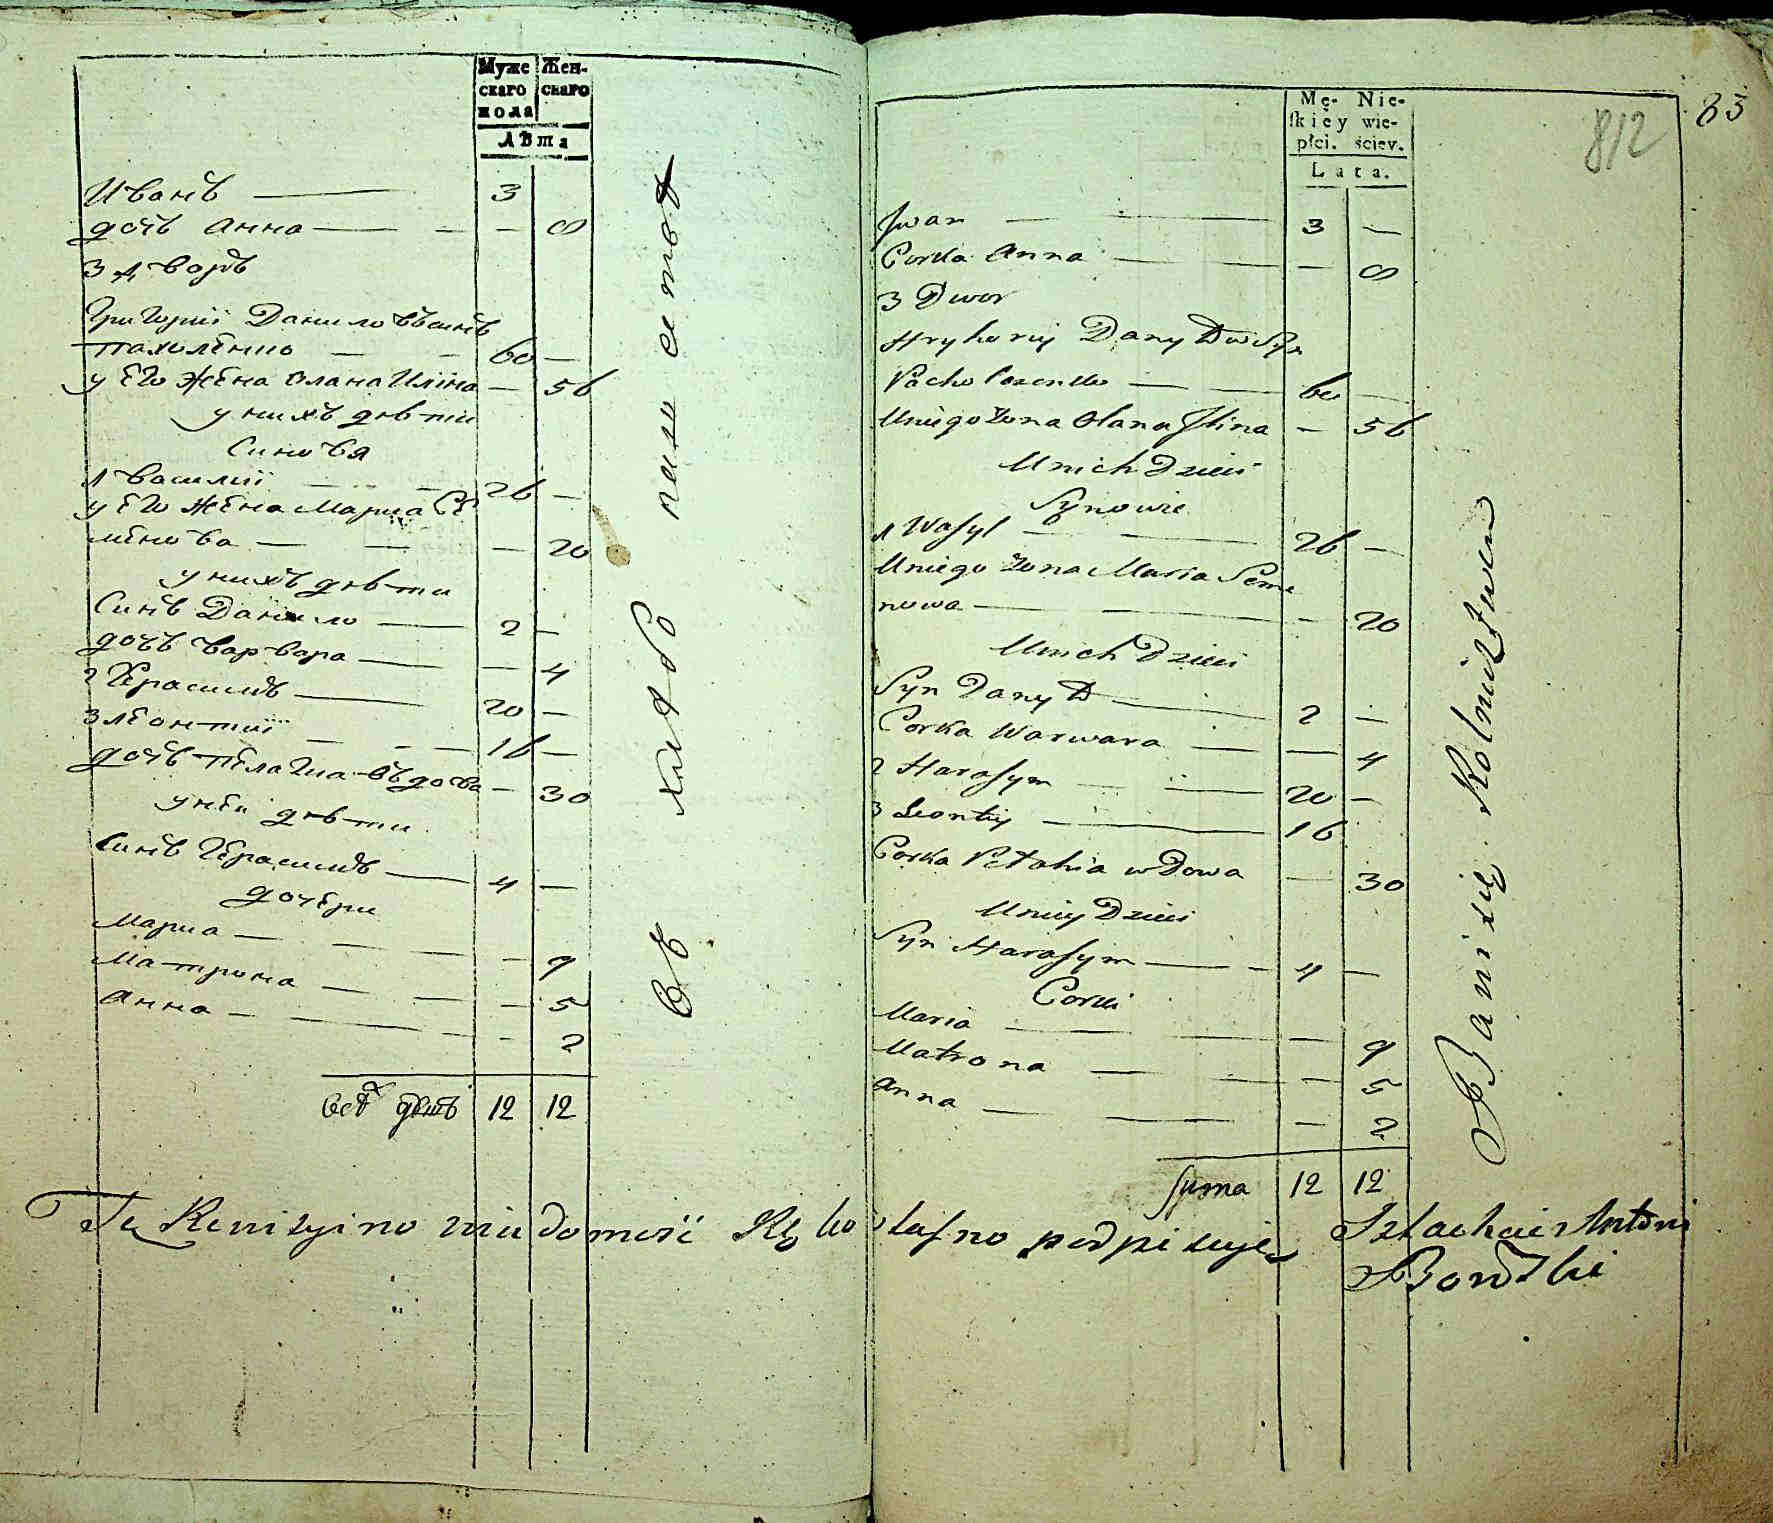 Муже Жен-
скаго скаго
пола
Лѣта
Иванъ — 3
дочъ Анна — — — 8
3 дворъ
Григорий Данило въ синъ
Пахоленко — — 60 —
у его жена Олана Иліна — 56
у нихъ дѣти
Синовя
1 Василий — — 26 —
у его жена Мариа Се
менова — — — 20
у нихъ дѣти
Синъ Данило — 2 —
дочъ Варвара — — 4
2 Герасимъ — 20 —
3 Леонтий — — — 16 —
дочъ Пелагиа въдова — 30
у неи дѣти
Синъ Герасимъ — 4 —
дочери
Мариа — — — — 9
Матрона — — — 5
Анна — — — — 2
12 12
Mę- Nie-
skiey wie-
płci. ściey.
Lata.
83
812
Jwan — — 3 —
Corka Anna — — — 8
3 Dwor
Hryhorij Danyłow Syn
Pacholenko — — 60 —
Uniego Zona Olana Jlina — 56
Unich Dzieci
Synowie
1 Wasyl — — 26 —
Uniego Zona Maria Seme
nowa — — — 20
Unich Dzieci
Syn Danyło — 2 —
Corka Warwara — — 4
2 Harasym — — 20 —
3 Leontij — — 16
Corka Pełahia wdowa — 30
Uniey Dzieci
Syn Harasym — - 4 —
Corki
Maria — — — 9
Matrona — — — 5
Anna — — — 2
Suma 12 12
Bawi się Rolnictwem
Tę Rewizyino wiadomość Rękо własno podpisuję Szlachcic Antoni